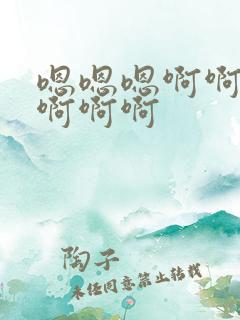 嗯嗯嗯啊啊
啊啊啊
陶子
未经同意禁止转载